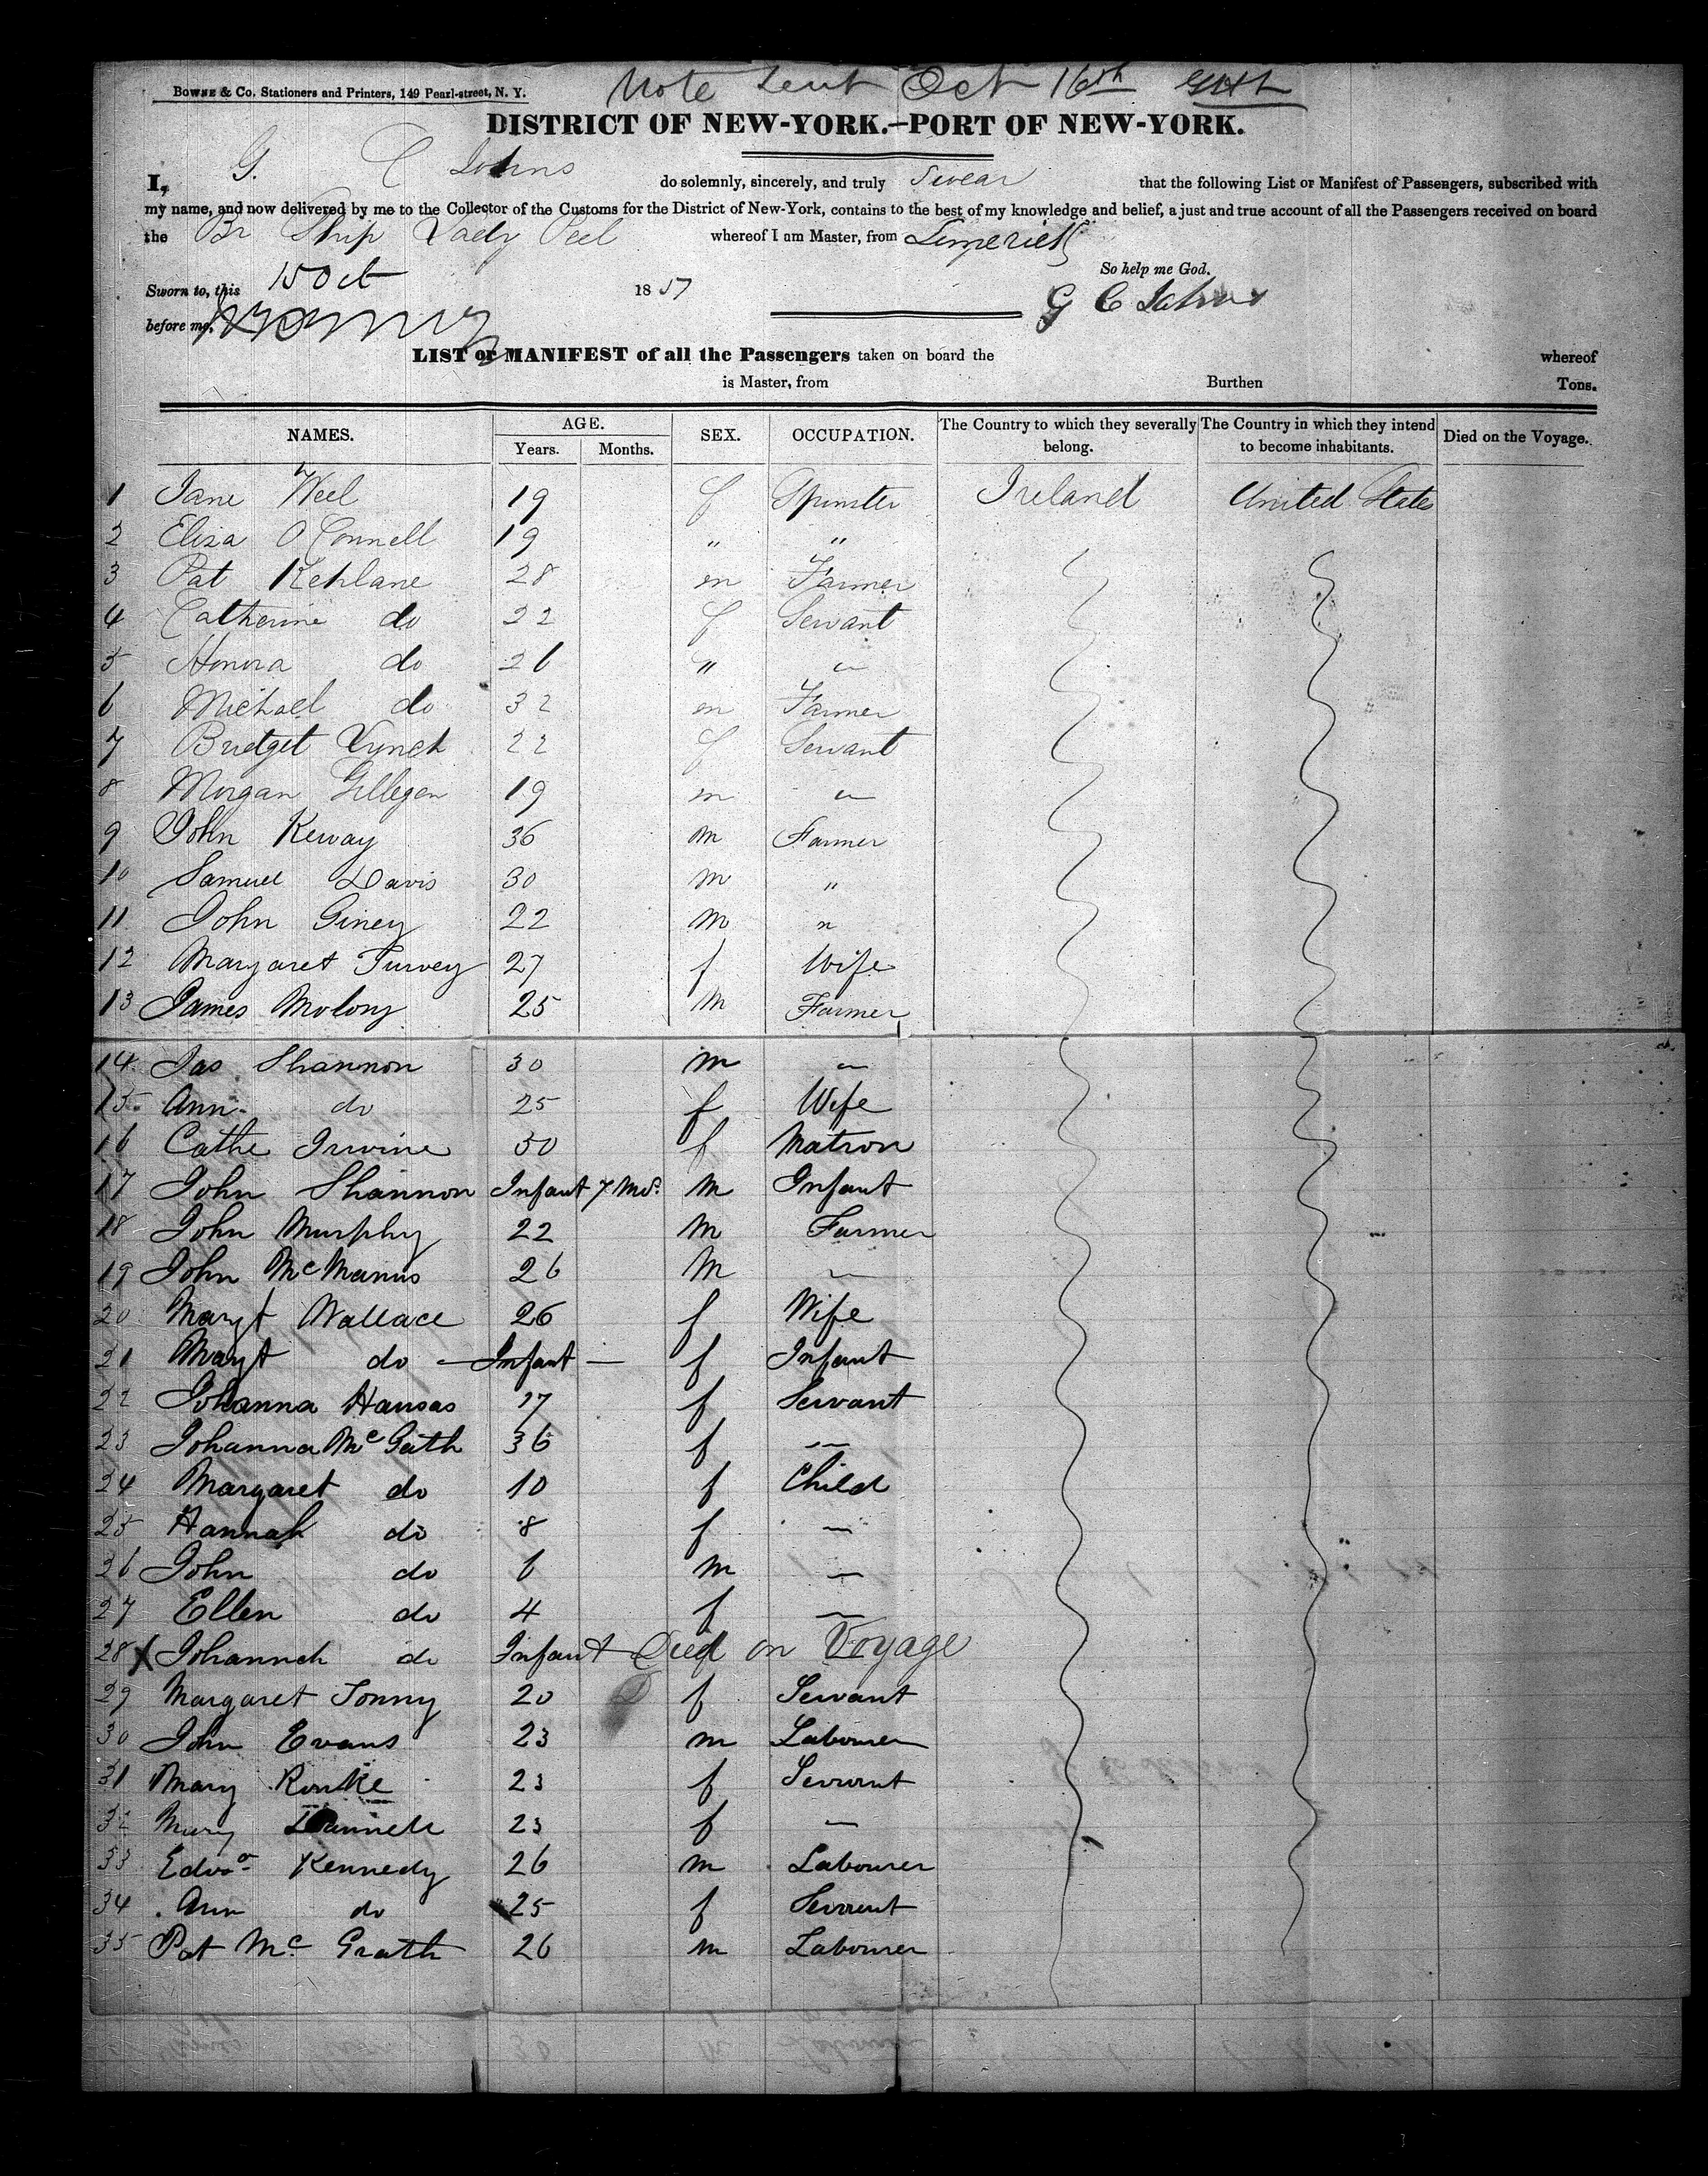 Note sent Oct 16th
Bowne & Co. Stationers and Printers, 149 Pearl-street, N. Y.
DISTRICT OF NEW-YORK.—PORT OF NEW-YORK.
I, G. C Johns do solemnly, sincerely, and truly Swear that the following List or Manifest of Passengers, subscribed with
my name, and now delivered by me to the Collector of the Customs for the District of New-York, contains to the best of my knowledge and belief, a just and true account of all the Passengers received on board
the Br Ship Lady Peel whereof I am Master, from Limerick
So help me God.
Sworn to, this 15 Oct 1857
G C Johns
before me,
LIST or MANIFEST of all the Passengers taken on board the whereof
is Master, from Burthen Tons.
NAMES. AGE. Years. Months. SEX. OCCUPATION. The Country to which they severally belong. The Country in which they intend to become inhabitants. Died on the Voyage.
1 Jane Weel 19 f Spinster Ireland United States
2 Eliza O Connell 19 " "
3 Pat Kehlane 28 m Farmer
4 Catherine do 22 f Servant
5 Honora do 26 " "
6 Michael do 32 m Farmer
7 Bridget Lynch 22 f Servant
8 Morgan Gillegan 19 m "
9 John Kerway 36 m Farmer
10 Samuel Davis 30 m "
11 John Giney 22 m "
12 Margaret Turvey 27 f Wife
13 James Molony 25 m Farmer
14 Jas Shannon 30 m "
15 Ann do 25 f Wife
16 Cathe Irvine 30 f Matron
17 John Shannon Infant 7 Mos. m Infant
18 John Murphy 22 m Farmer
19 John McManus 26 m "
20 Margt Wallace 26 f Wife
21 Margt do — Infant — f Infant
22 Johanna Hansas 17 f Servant
23 Johanna McGath 36 f —
24 Margaret do 10 f Child
25 Hannah do 8 f —
26 John do 6 m —
27 Ellen do 4 f —
28 X Johannah do Infant Died on Voyage
29 Margaret Tonny 20 f Servant
30 John Evans 23 m Labourer
31 Mary Rourke 23 f Servant
32 Mary 23 f —
33 Edwd Kennedy 26 m Labourer
34 Ann do 25 f Servant
35 Pat Mc Grath 26 m Labourer